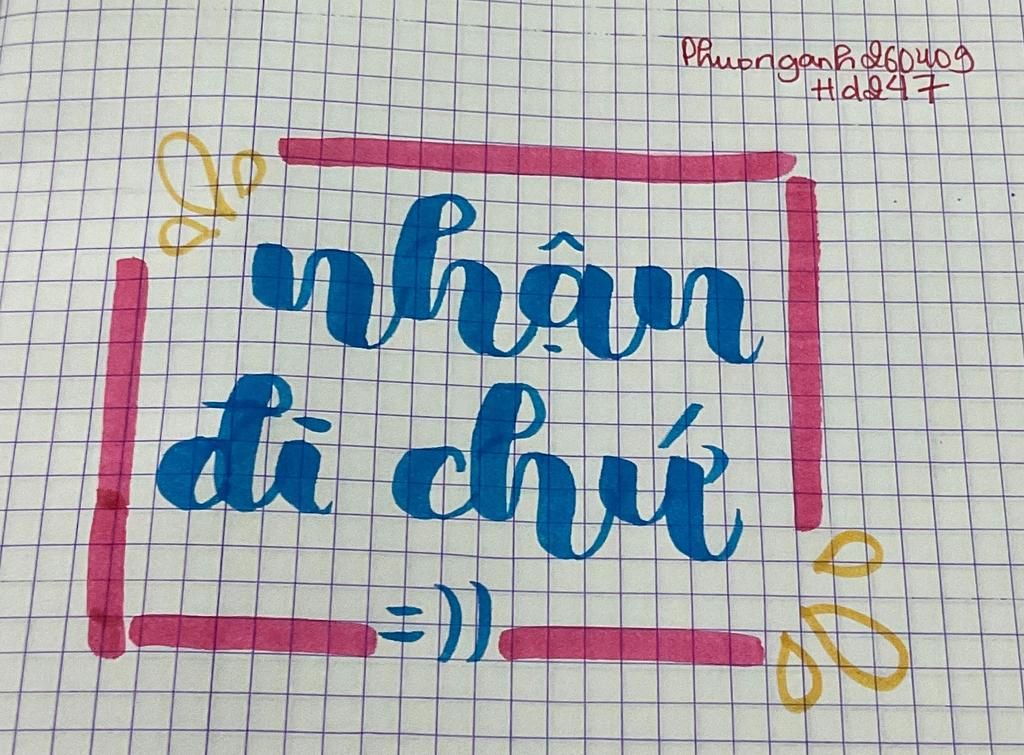 Phuonganh260409
Hd247
nhận
đi chứ
=))